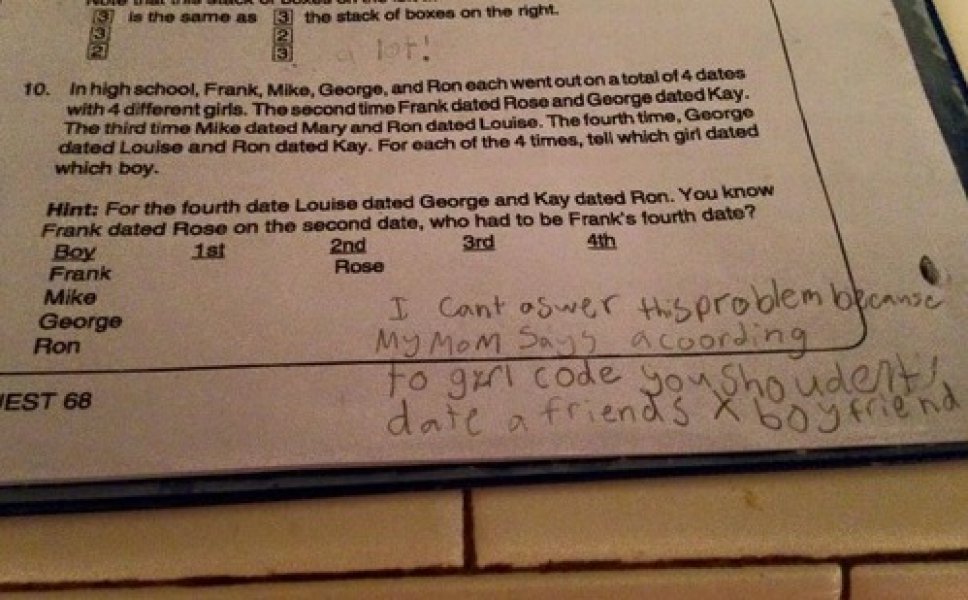 3 is the same as 3 the stack of boxes on the right.
3 2
2 3
a lot!
10. In high school, Frank, Mike, George, and Ron each went out on a total of 4 dates
with 4 different girls. The second time Frank dated Rose and George dated Kay.
The third time Mike dated Mary and Ron dated Louise. The fourth time, George
dated Louise and Ron dated Kay. For each of the 4 times, tell which girl dated
which boy.
Hint: For the fourth date Louise dated George and Kay dated Ron. You know
Frank dated Rose on the second date, who had to be Frank's fourth date?
Boy 1st 2nd 3rd 4th
Frank Rose
Mike
George
Ron
I cant aswer this problem because
My Mom Says acoording
to girl code you shoudent
date a friends X boyfriend
68